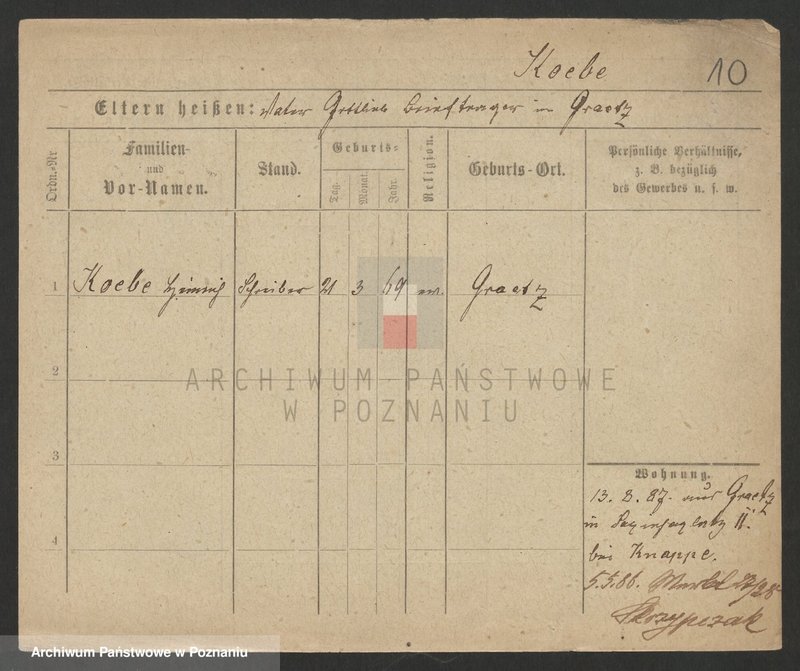 Koebe 10
Eltern heißen: Vater Gottlieb Briefträger in Graetz
Ordn.-Nr.
Familien- und Vor-Namen.
Stand.
Geburts-
Tag.
Monat.
Jahr.
Religion.
Geburts-Ort.
Persönliche Verhältnisse,
z. B. bezüglich
des Gewerbes u. s. w.
1 Koebe Heinrich Schreiber 21 3 69 ev. Graetz
2
ARCHIWUM PAŃSTWOWE
W POZNANIU
3
4
Wohnung.
13. 8. 87. aus Graetz
in II.
bei Knappe.
5.5.86.
Skrzypczak
Archiwum Państwowe w Poznaniu